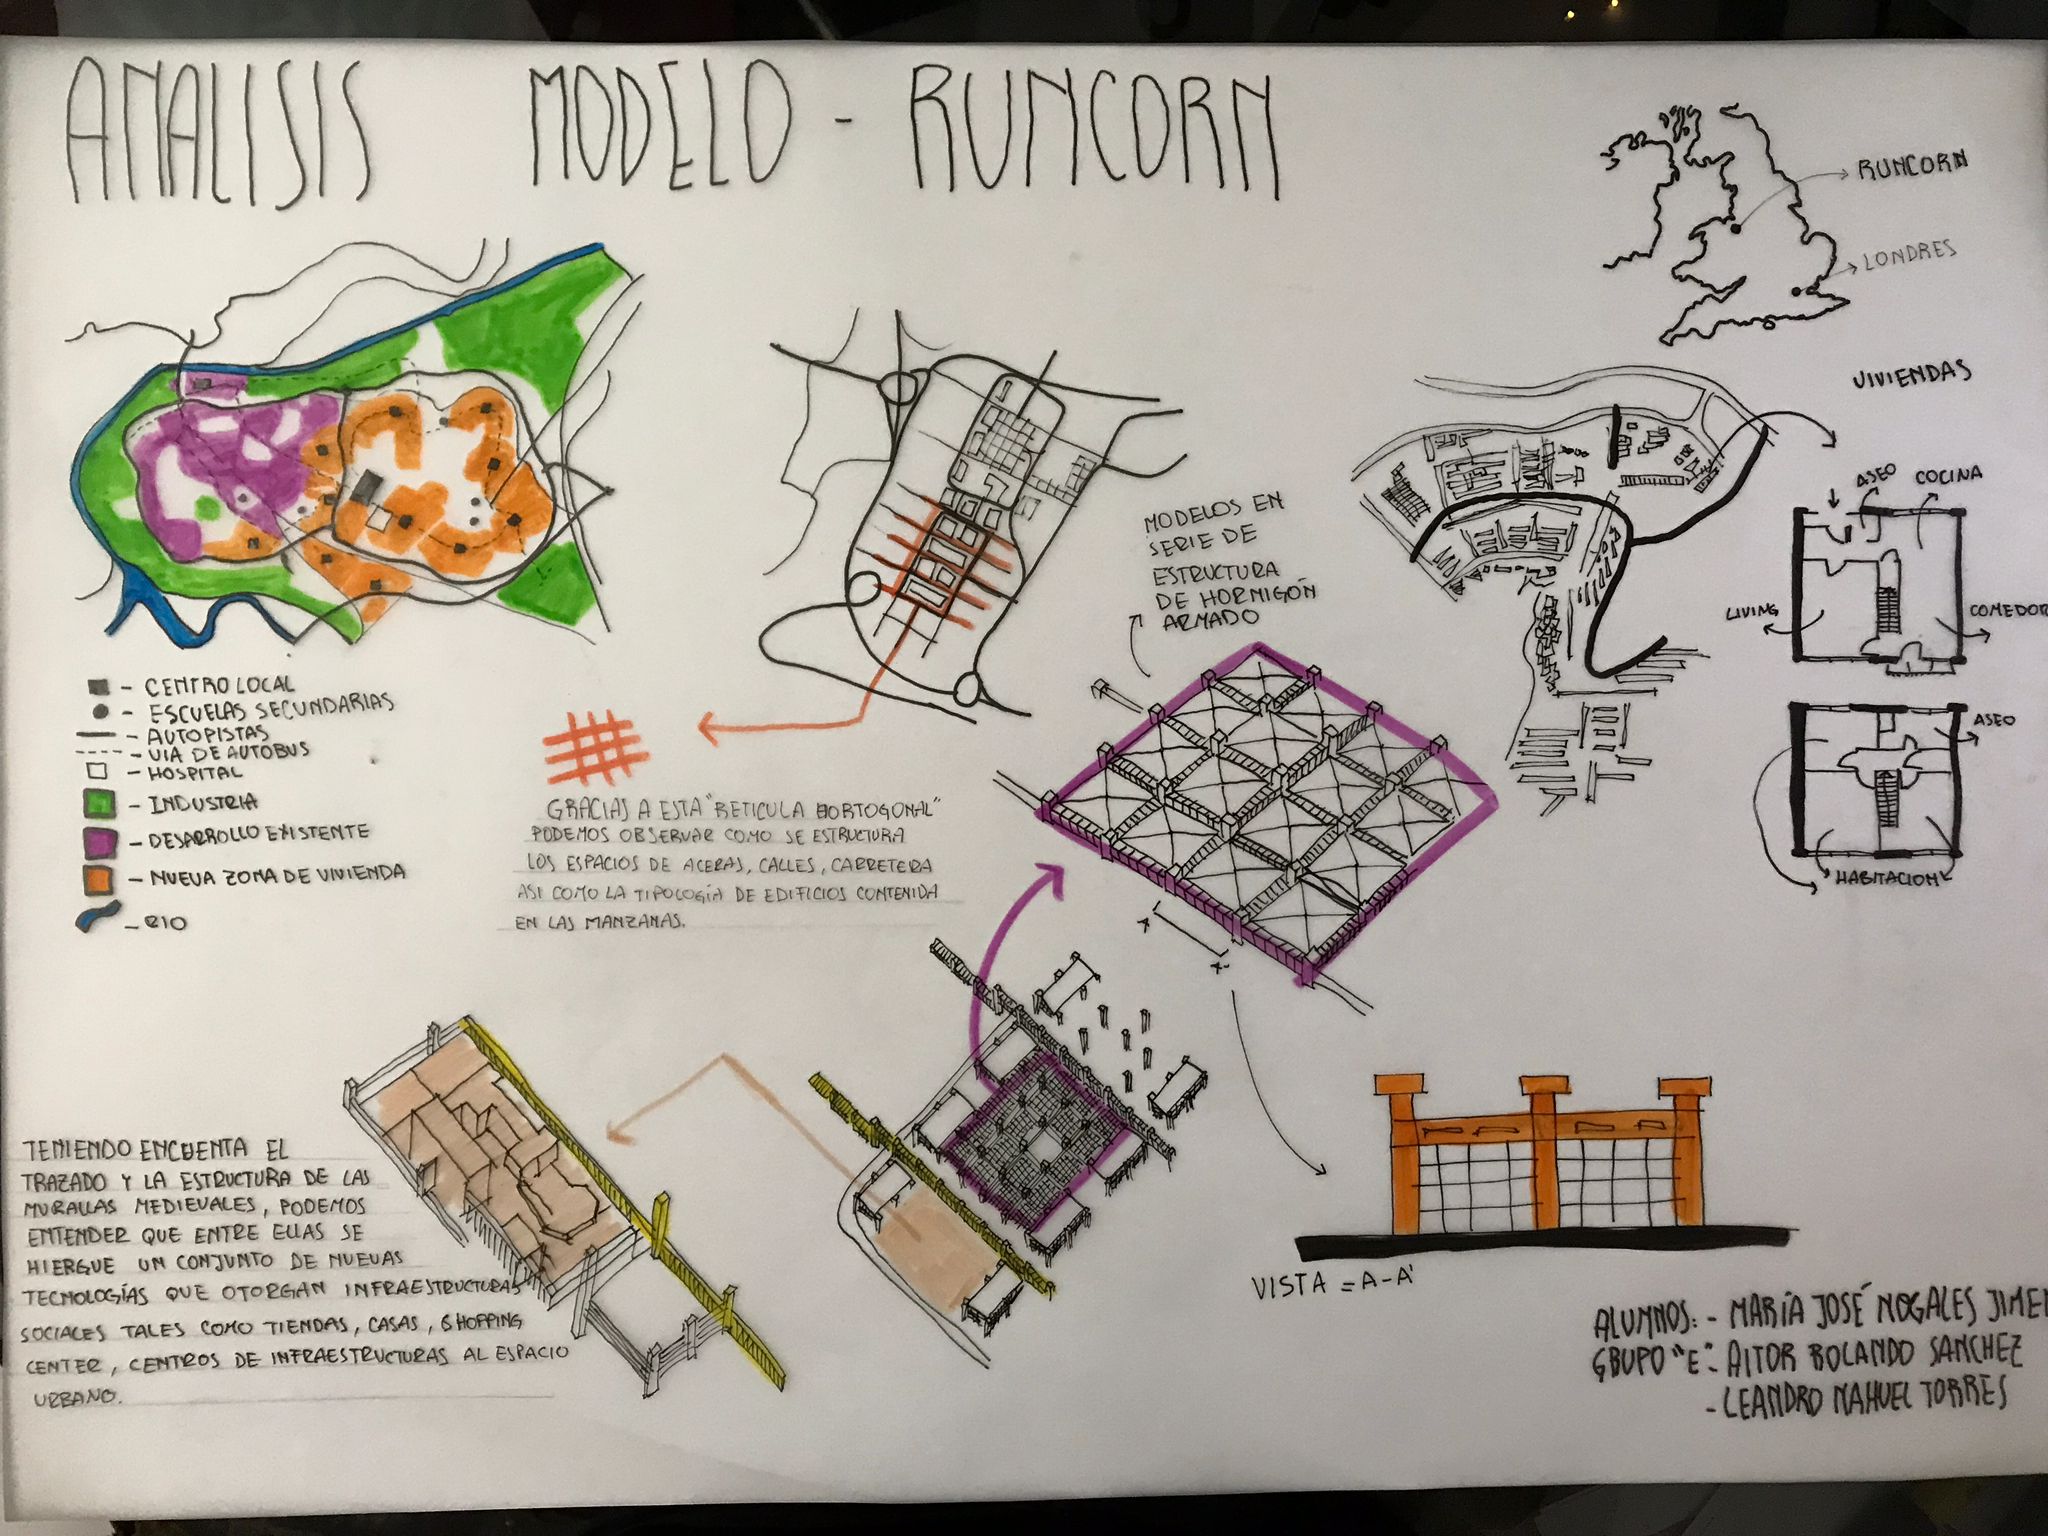 ANALISIS MODELO - RUNCORN
RUNCORN
LONDRES
VIVIENDAS
ASEO
COCINA
LIVING
COMEDOR
ASEO
HABITACION
MODELOS EN
SERIE DE
ESTRUCTURA
DE HORMIGÓN
ARMADO
- CENTRO LOCAL
- ESCUELAS SECUNDARIAS
- AUTOPISTAS
- VIA DE AUTOBUS
- HOSPITAL
- INDUSTRIA
- DESARROLLO EXISTENTE
- NUEVA ZONA DE VIVIENDA
- RIO
GRACIAS A ESTA "RETICULA HORTOGONAL"
PODEMOS OBSERVAR COMO SE ESTRUCTURA
LOS ESPACIOS DE ACERAS, CALLES, CARRETERA
ASI COMO LA TIPOLOGÍA DE EDIFICIOS CONTENIDA
EN LAS MANZANAS.
TENIENDO ENCUENTA EL
TRAZADO Y LA ESTRUCTURA DE LAS
MURALLAS MEDIEVALES, PODEMOS
ENTENDER QUE ENTRE ELLAS SE
HIERGUE UN CONJUNTO DE NUEVAS
TECNOLOGÍAS QUE OTORGAN INFRAESTRUCTURAS
SOCIALES TALES COMO TIENDAS, CASAS, SHOPPING
CENTER, CENTROS DE INFRAESTRUCTURAS AL ESPACIO
URBANO.
VISTA = A-A'
ALUMNOS: - MARÍA JOSÉ NOGALES JIMEN
GRUPO "E" - AITOR ROLANDO SANCHEZ
- LEANDRO NAHUEL TORRES